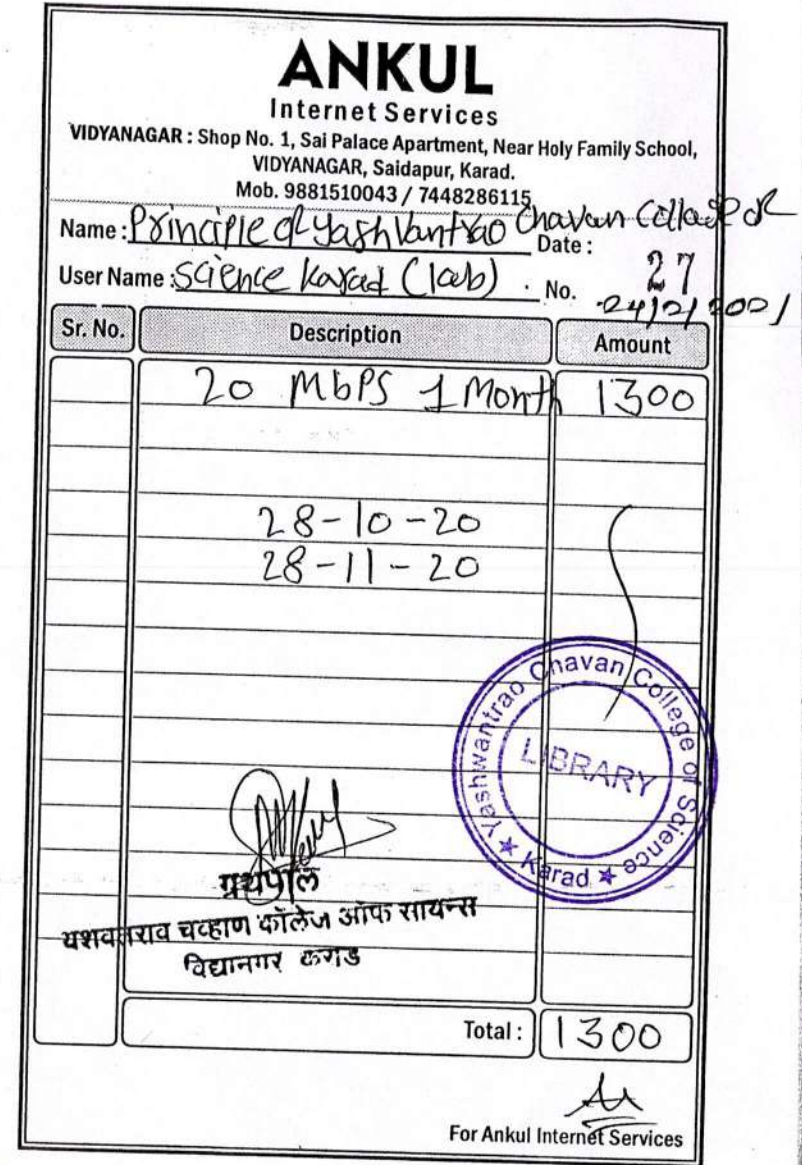 ANKUL
Internet Services
VIDYANAGAR : Shop No. 1, Sai Palace Apartment, Near Holy Family School,
VIDYANAGAR, Saidapur, Karad.
Mob. 9881510043 / 7448286115
Name : Principle of Yashvantrao Chavan College of
Date :
User Name : Science Karad (lab)
No. 27
24/2/2001
Sr. No. Description Amount
20 Mbps 1 Month 1300
28-10-20
28-11-20
Yashwantrao Chavan College of Science
LIBRARY
★ Karad ★
ग्रंथपाल
यशवंतराव चव्हाण कॉलेज ऑफ सायन्स
विद्यानगर कराड
Total : 1300
For Ankul Internet Services